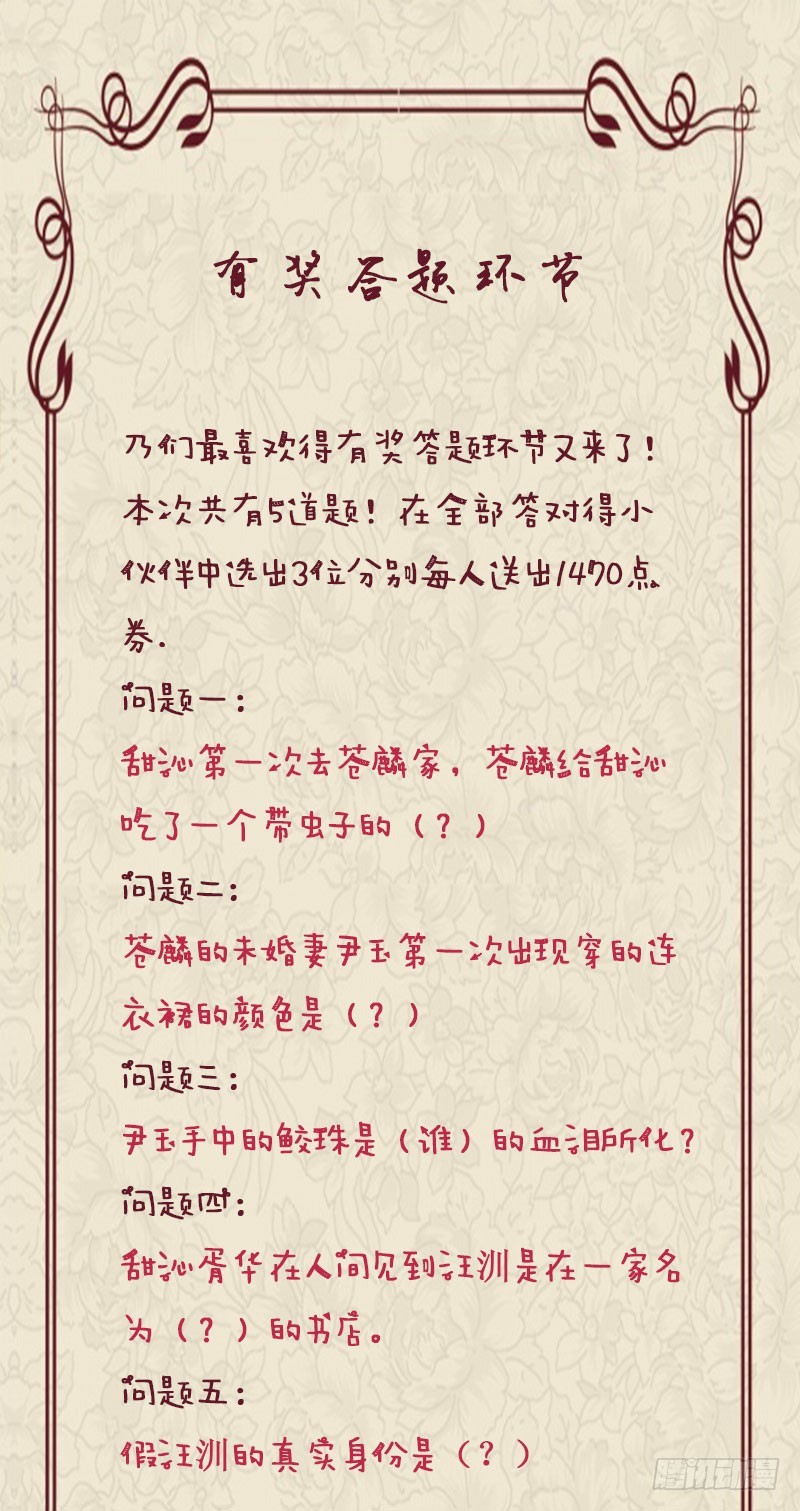 有奖答题环节
乃们最喜欢得有奖答题环节又来了!
本次共有5道题!在全部答对得小
伙伴中选出3位分别每人送出1470点
券.
问题一:
甜沁第一次去苍麟家,苍麟给甜沁
吃了一个带虫子的(?)
问题二:
苍麟的未婚妻尹玉第一次出现穿的连
衣裙的颜色是(?)
问题三:
尹玉手中的鲛珠是(谁)的血泪所化?
问题四:
甜沁胥华在人间见到汪洲是在一家名
为(?)的书店。
问题五:
假汪洲的真实身份是(?)
腾讯动漫